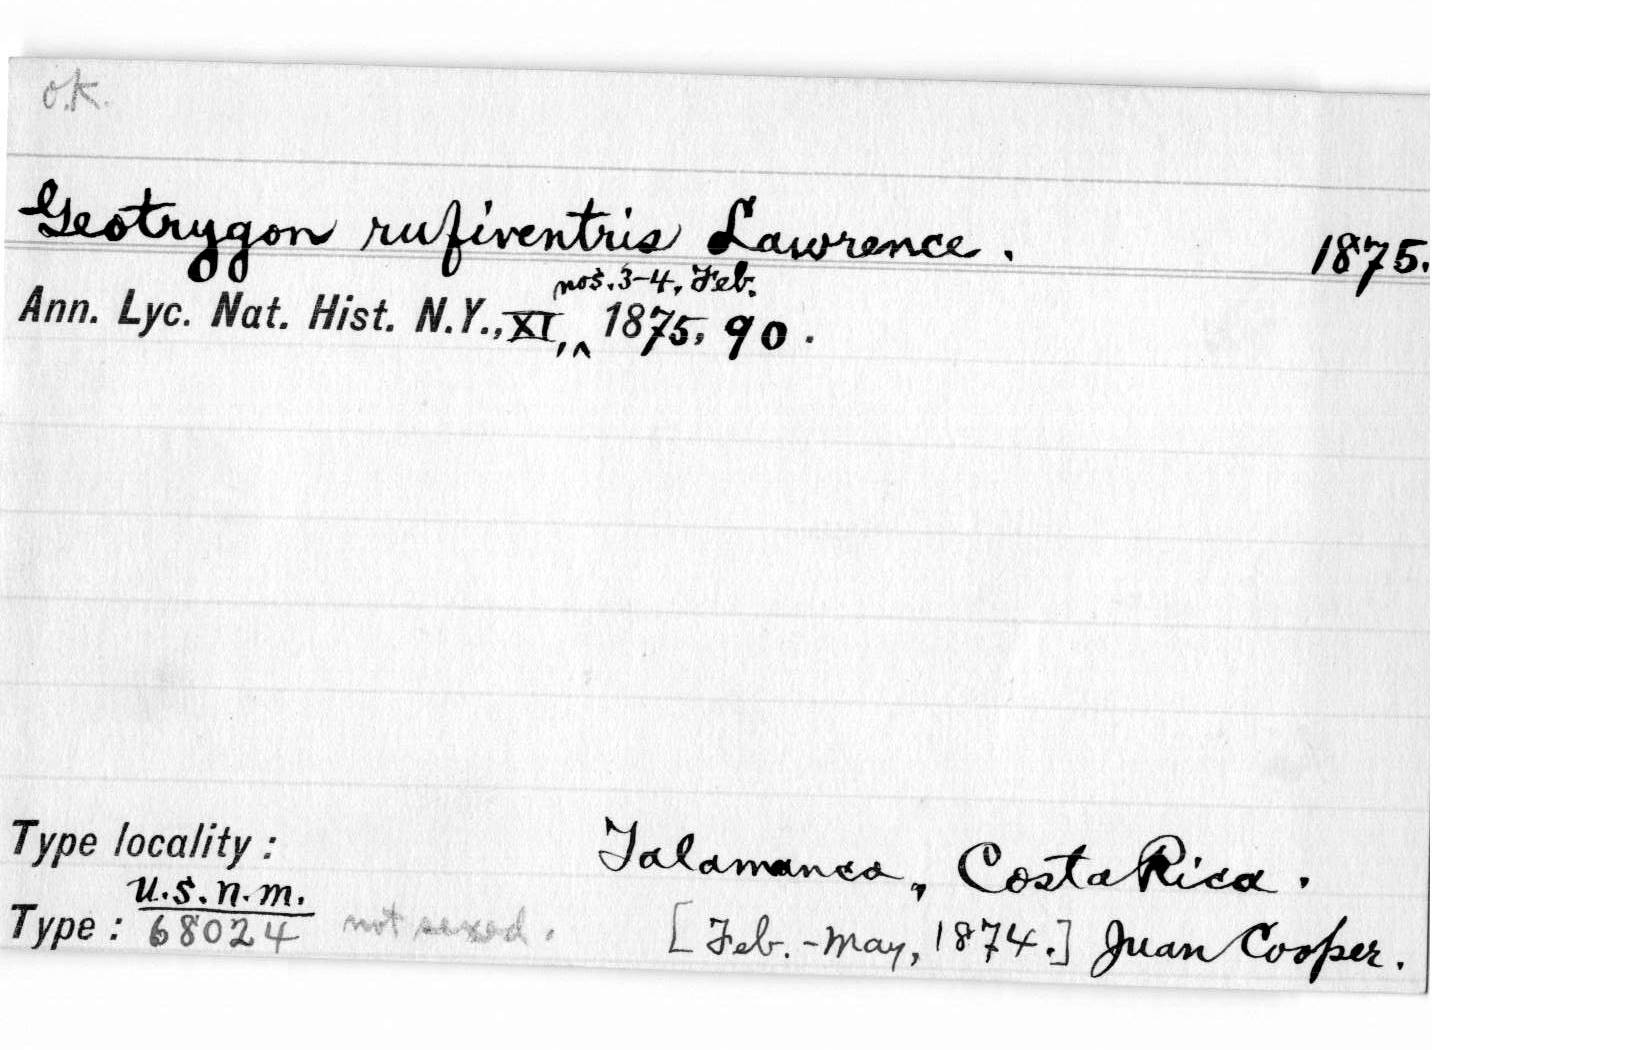 o.k.
Geotrygon rufiventris Lawrence. 1875.
nos. 3-4, Feb.
Ann. Lyc. Nat. Hist. N.Y., XI, ^ 1875, 90.
Type locality: Talamanca, Costa Rica.
U.S.N.M.
Type: 68024 not sexed. [Feb.-May, 1874.] Juan Cooper.